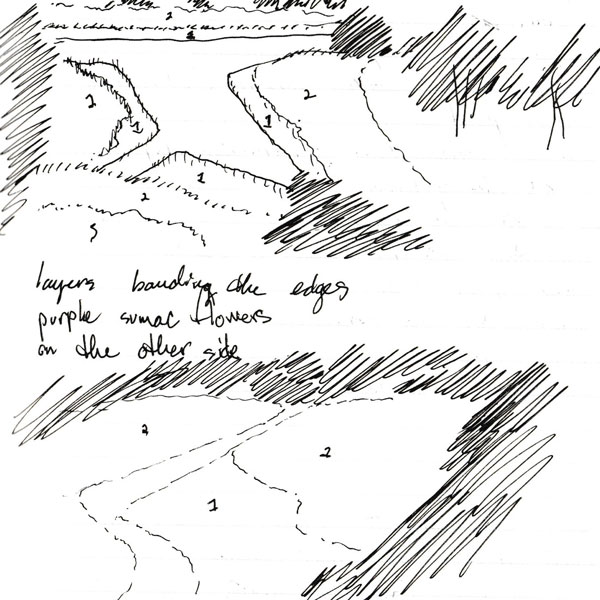 2
1
2
2
1
1
1
2
3
layers banding the edges
purple sumac flowers
on the other side
2
2
1